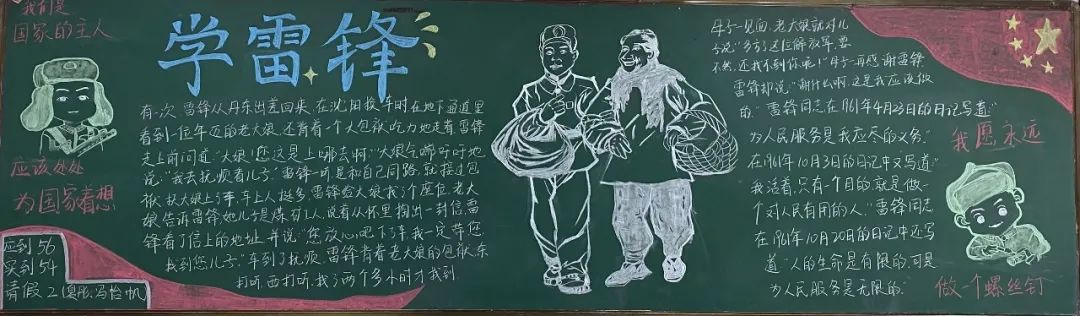 我们是
国家的主人
应该处处
为国家着想
应到56
实到54
请假2
学雷锋
有一次 雷锋从丹东出差回来,在沈阳换车时在地下通道里
看到一位年迈的老大娘,还背着一个大包袱吃力地走着雷锋
走上前问道"大娘!您这是上哪去啊"大娘气嘘吁吁地
说:"我去抚顺看儿子"雷锋一听是和自己同路,就接过包
袱,扶大娘上了车,车上人挺多,雷锋给大娘找了个座位,老大
娘告诉雷锋,她儿子是煤矿工人,说着从怀里掏出一封信,雷
锋看了信上的地址,并说:"您放心吧下了车我一定带您
找到您儿子"车到了抚顺,雷锋背着老大娘的包袱,东
打听,西打听,找了两个多小时才找到
母子一见面,老大娘就对儿
子说"多亏这位解放军,要
不然,还找不到你呢!"母子一再感谢雷锋
雷锋却说"谢什么啊,这是我应该做
的"雷锋同志在1961年4月23日的日记写道"
为人民服务是我应尽的义务"
在1961年10月3日的日记中又写道"
"我活着,只有一个目的,就是做一
个对人民有用的人,"雷锋同志
在1961年10月20日的日记中还写
道"人的生命是有限的,可是
为人民服务是无限的"
我愿永远
做一个螺丝钉